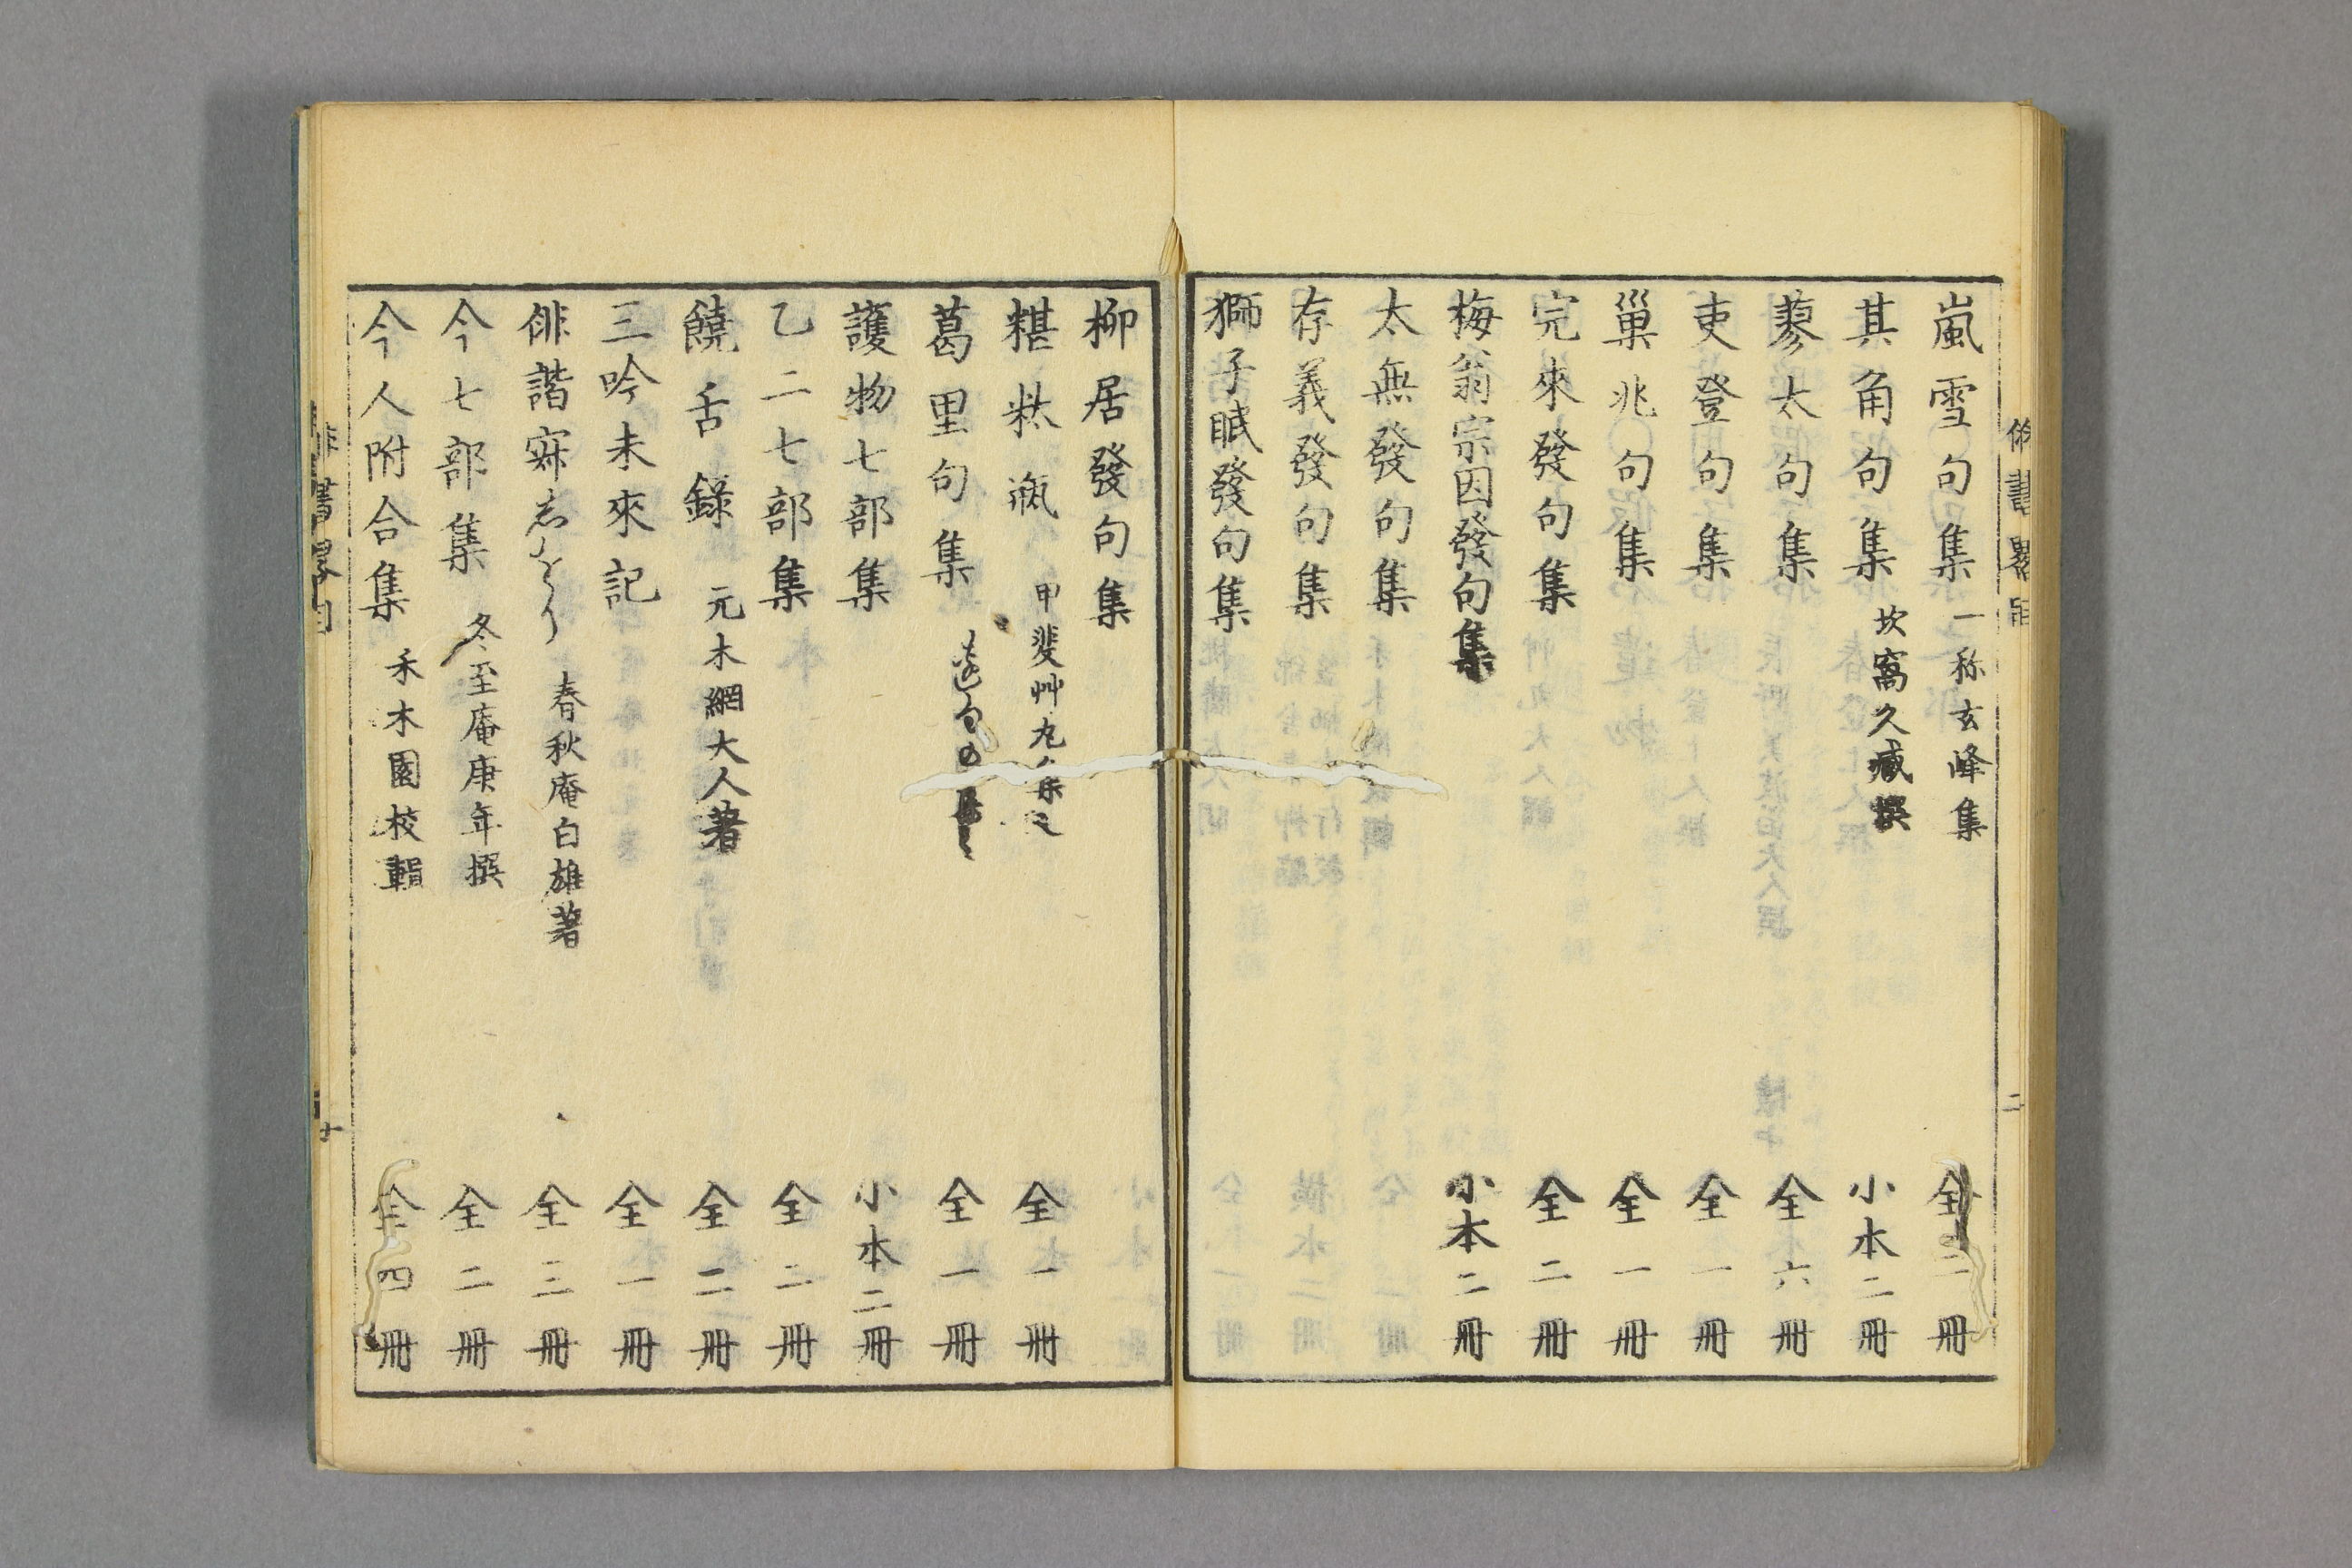 嵐雪句集 一称玄峰集 全二冊
其角句集 坎窩久臧撰 小本二冊
蓼太句集 全六冊
吏登句集 全一冊
巣兆句集 全一冊
完來發句集 全二冊
梅翁宗因發句集 小本二冊
太無發句集
存義發句集
獅子眠發句集
柳居發句集
糂粏瓶 甲斐艸丸集 全一冊
葛里句集 全一冊
護物七部集 小本二冊
乙二七部集 全二冊
饒舌錄 元木網大人著 全二冊
三吟未來記 全一冊
俳諧寂志をり 春秋庵白雄著 全三冊
今七部集 冬至庵庚年撰 全二冊
今人附合集 禾木園校輯 全四冊